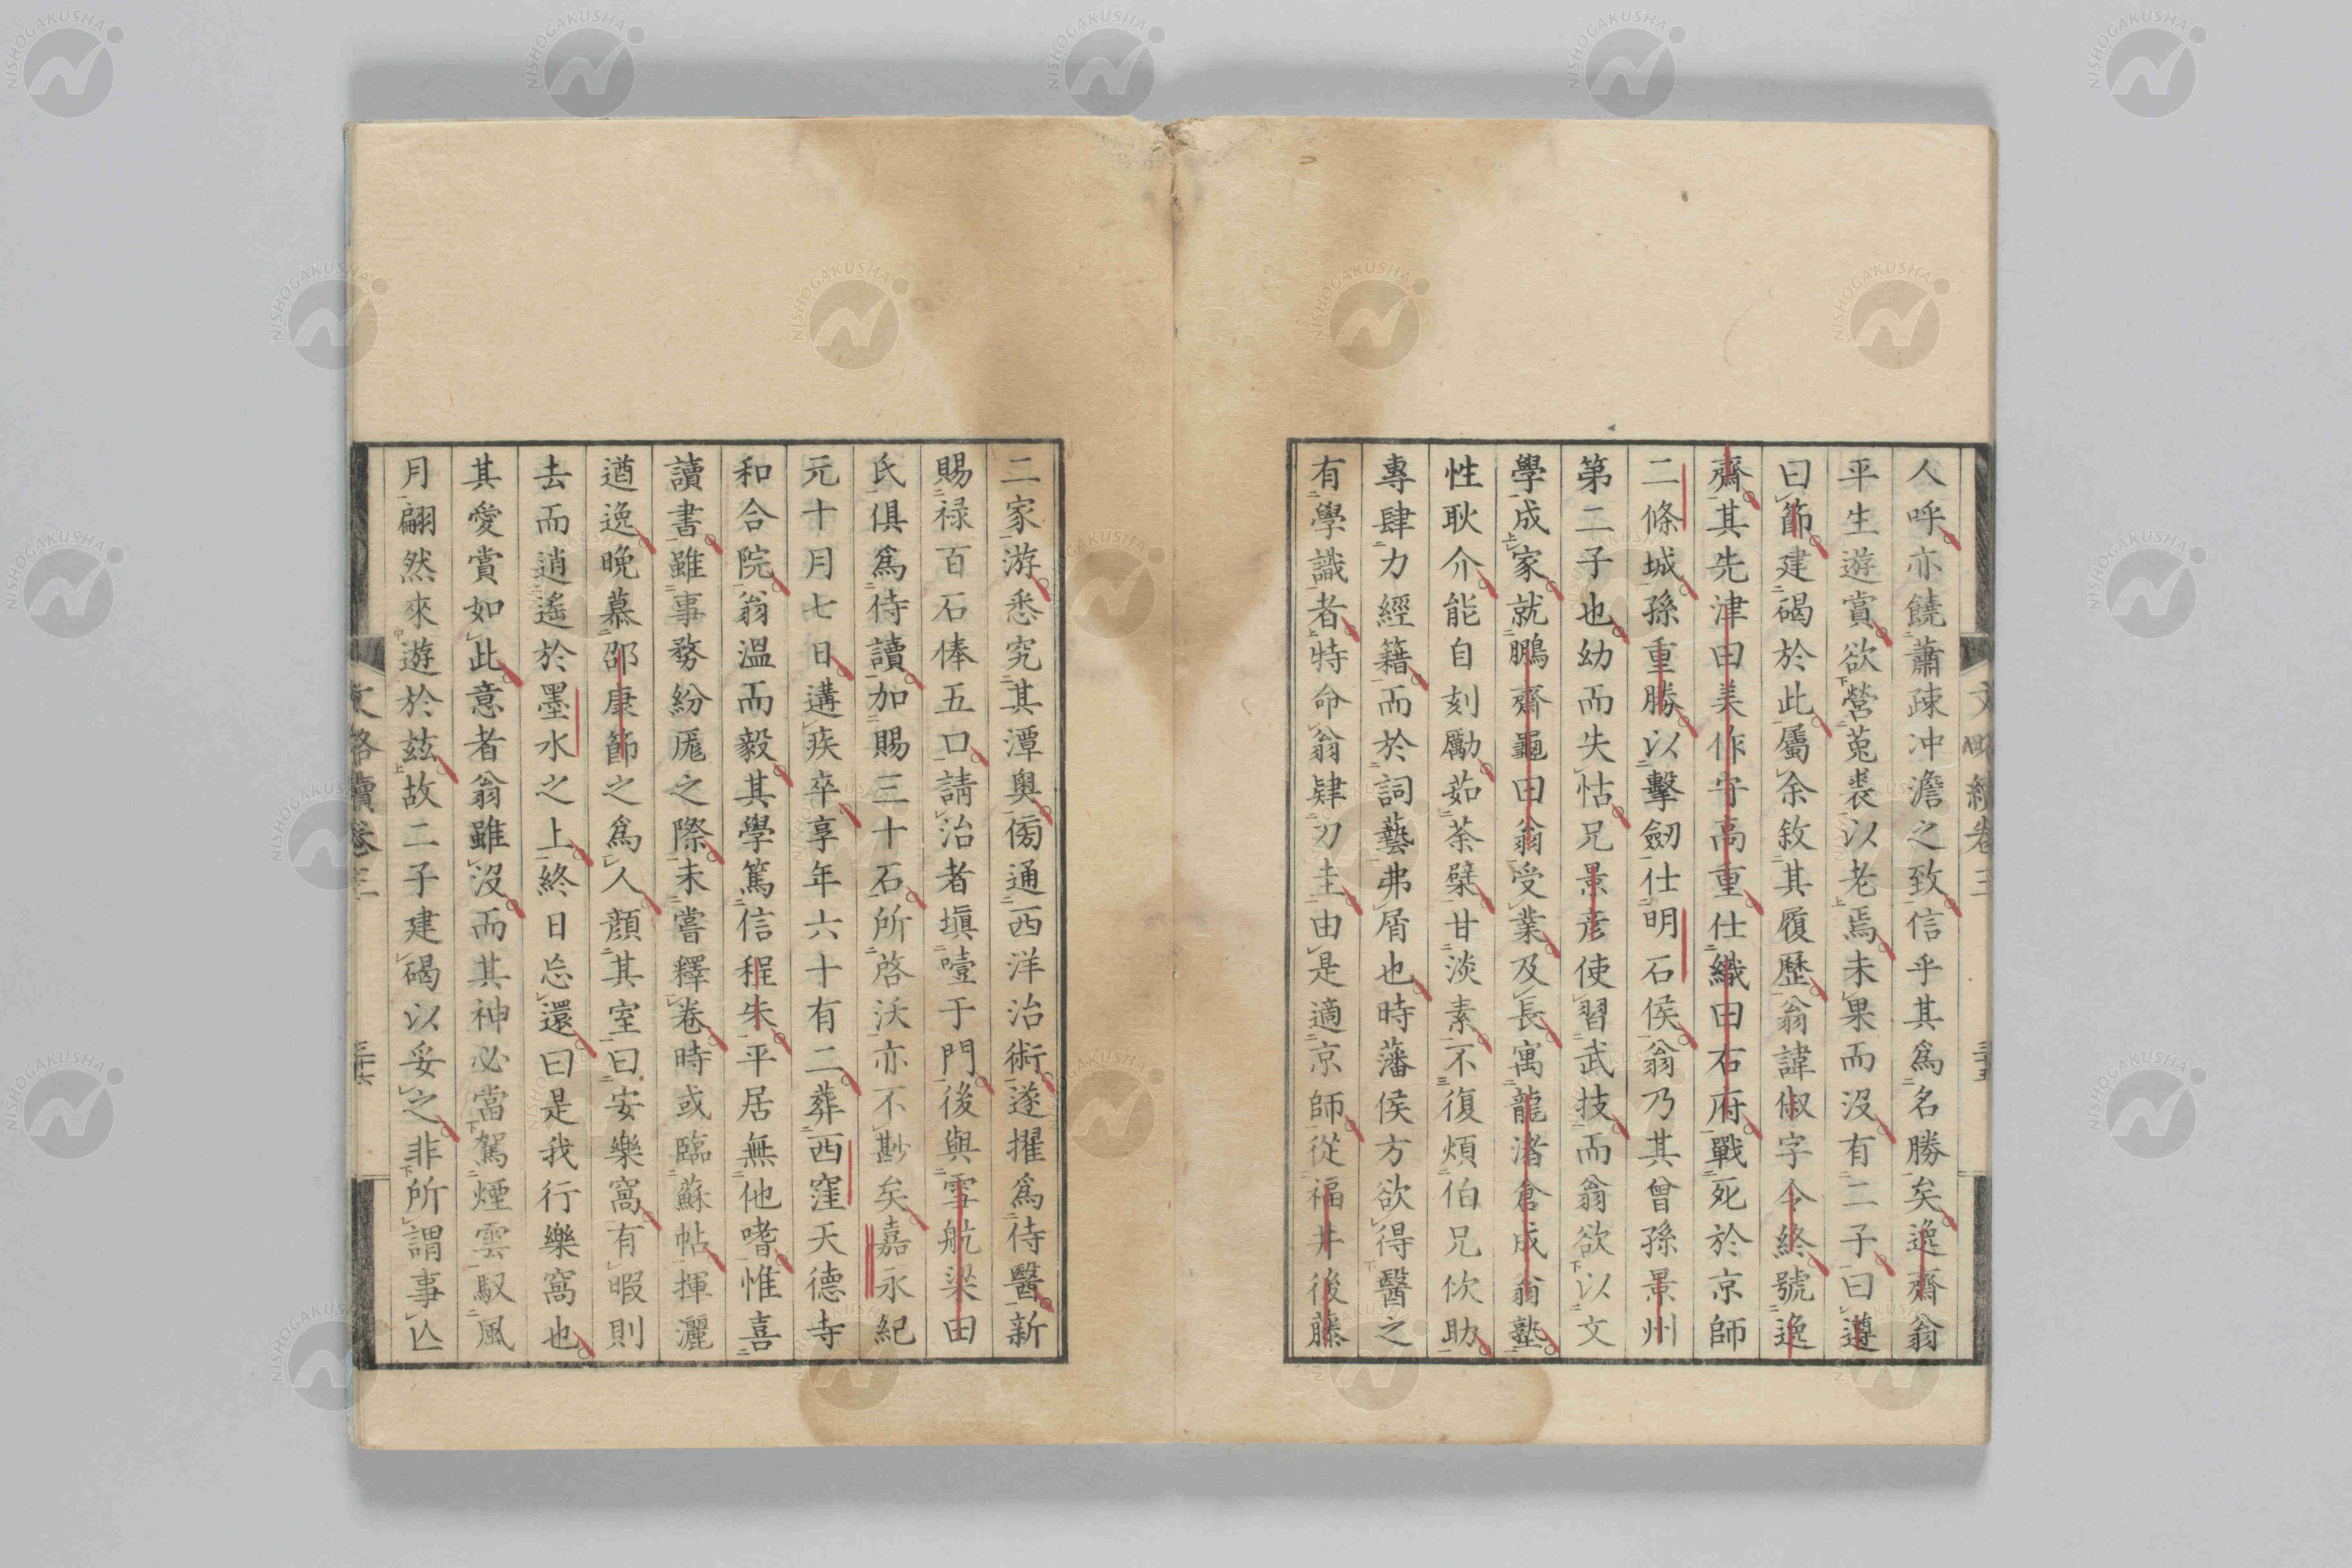 人呼亦饒蕭疎冲澹之致信乎其爲名勝矣逸齋翁
平生遊賞欲營菟裘以老焉未果而沒有二子曰遵
曰節建碣於此屬余敘其履歷翁諱俶字令終號逸
齋其先津田美作守高重仕織田右府戰死於京師
二條城孫重勝以擊劒仕明石侯翁乃其曾孫景州
第二子也幼而失怙兄景彥使習武技而翁欲以文
學成家就鵬齋龜田翁受業及長寓龍渚倉成翁塾
性耿介能自刻勵茹荼檗甘淡素不復煩伯兄佽助
專肆力經籍而於詞藝弗屑也時藩侯方欲得醫之
有學識者特命翁肄刀圭由是適京師從福井後藤
二家游悉究其潭奧傍通西洋治術遂擢爲侍醫新
賜祿百石俸五口請治者塡噎于門後與雪航梁田
氏俱爲侍讀加賜三十石所啓沃亦不尠矣嘉永紀
元十月七日遘疾卒享年六十有二葬西窪天德寺
和合院翁溫而毅其學篤信程朱平居無他嗜惟喜
讀書雖事務紛厖之際未嘗釋卷時或臨蘇帖揮灑
遒逸晩慕邵康節之爲人顏其室曰安樂窩有暇則
去而逍遙於墨水之上終日忘還曰是我行樂窩也
其愛賞如此意者翁雖沒而其神必當駕煙雲馭風
月翩然來遊於茲故二子建碣以妥之非所謂事亾
文格續卷三
三十六
NISHOGAKUSHA